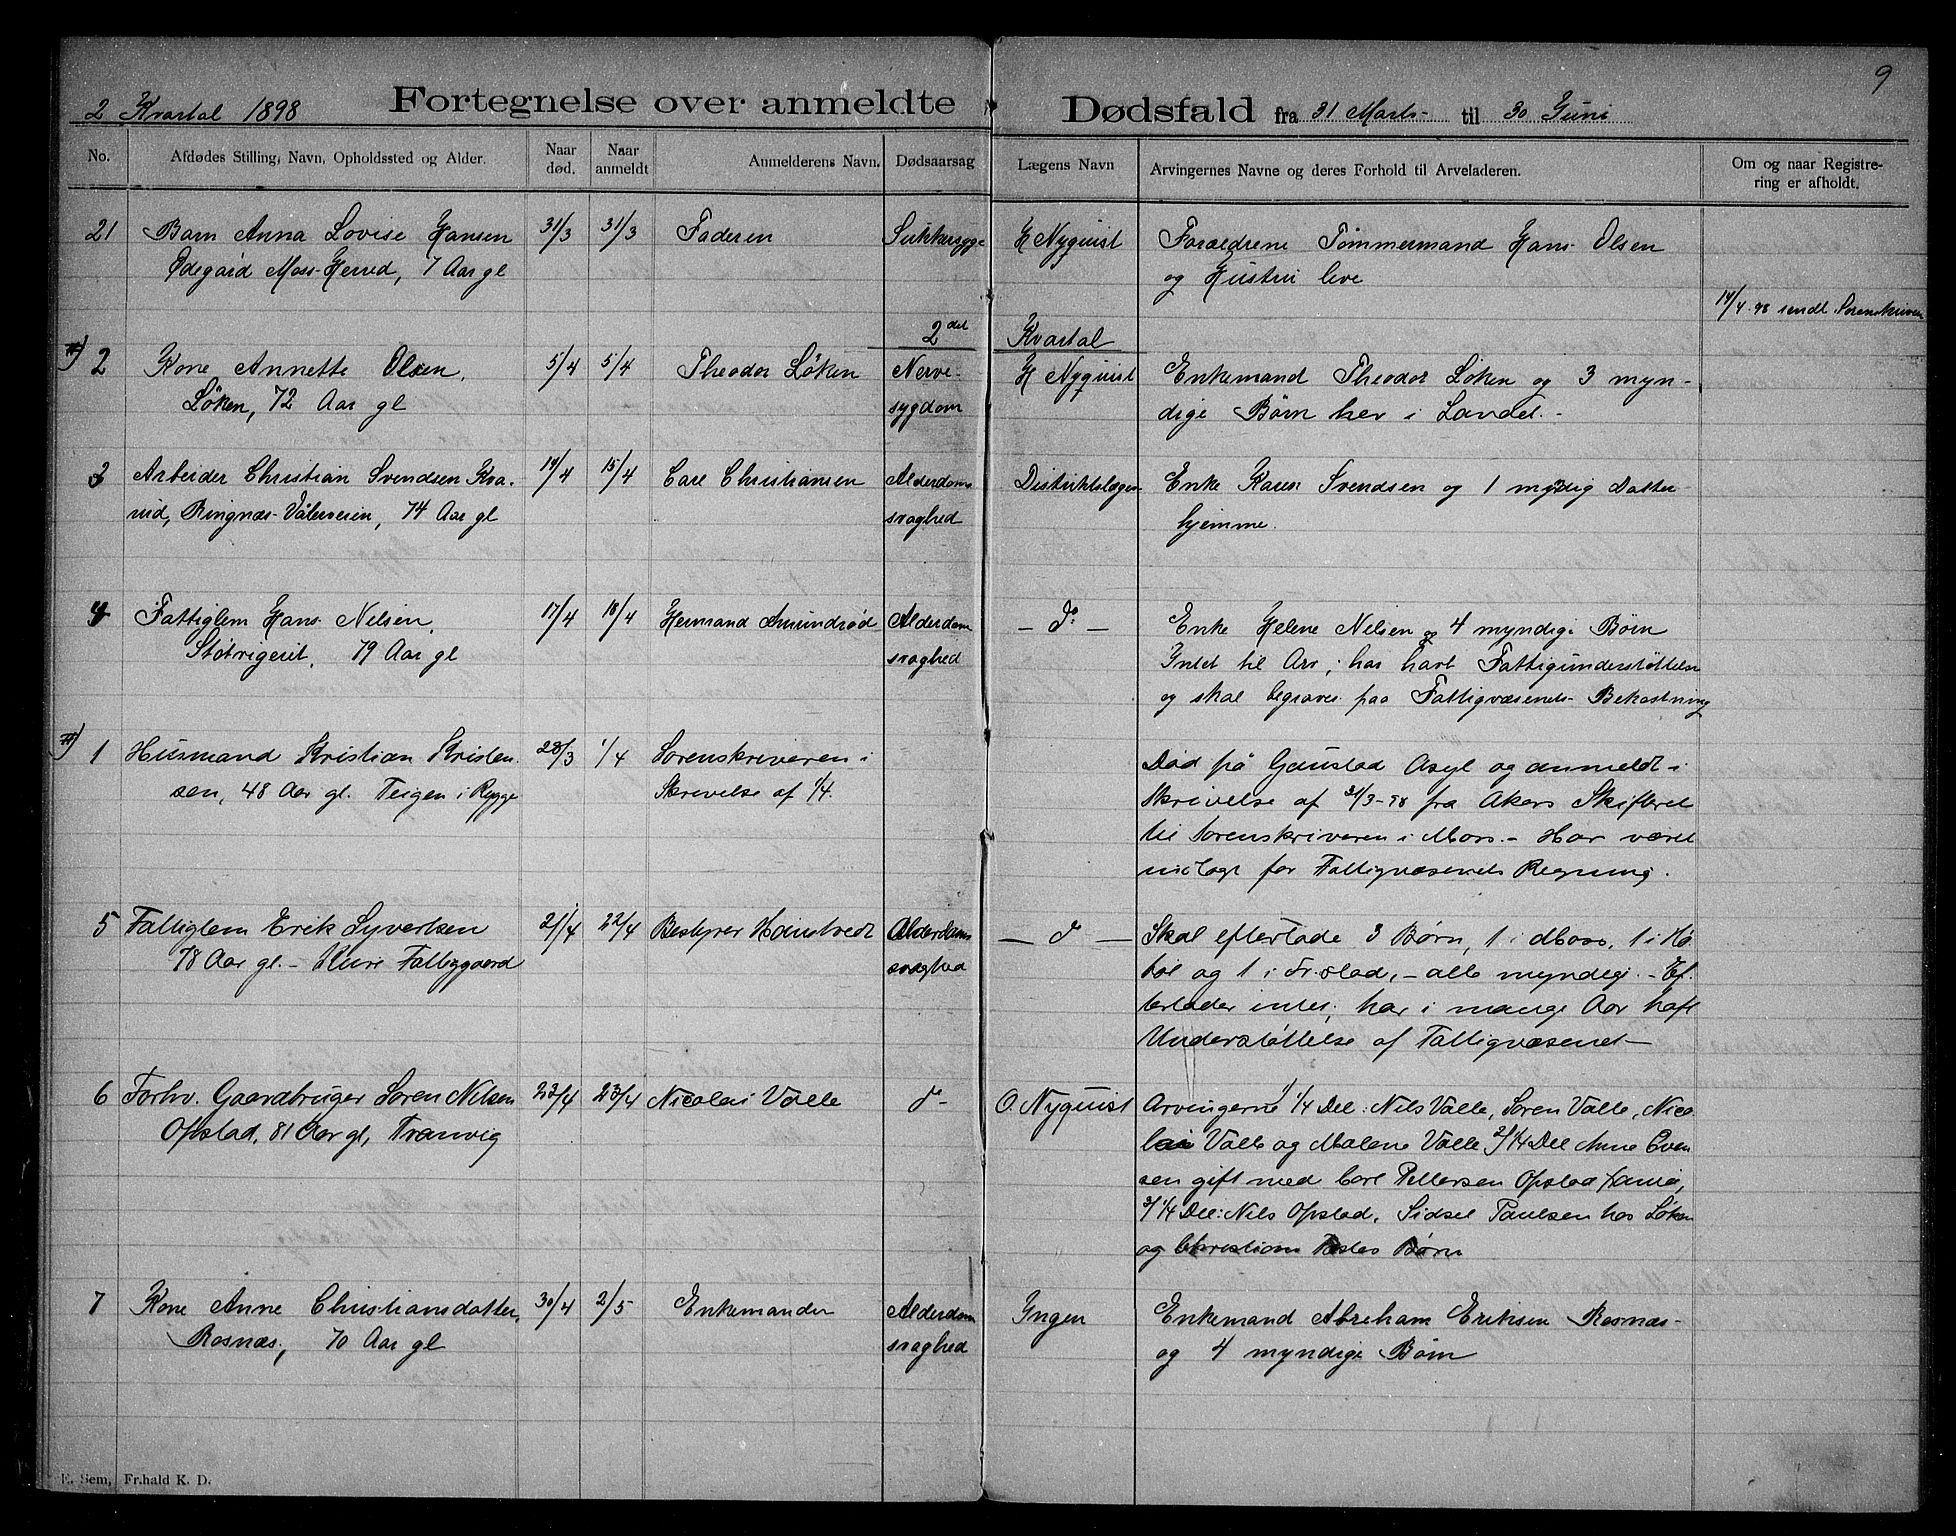 9
2 Kvartal 1898 Fortegnelse over anmeldte Dødsfald fra 31 Marts til 30 Juni
No. Afdødes Stilling, Navn, Opholdssted og Alder. Naar død. Naar anmeldt Anmelderens Navn. Dødsaarsag Lægens Navn Arvingernes Navne og deres Forhold til Arveladeren. Om og naar Registrering er afholdt.
21 Barn Anna Lovise Hansen 31/3 31/3 Faderen Sukkersyge H Nyquist Foræeldrene Tømmermand Hans Olsen
Ødegård Moss Herred, 7 Aar gl og Hustru leve
19/4 98 sendt Sorenskriveren
2det Kvartal
#) 2 Kone Annette Olsen, 5/4 5/4 Theodor Løken Nerve- H Nyquist Enkemand Theodor Løken og 3 myn-
Løken, 72 Aar gl sygdom dige Børn her i Landet.
3 Arbeider Christian Svendsen Kva- 14/4 15/4 Carl Christiansen Alderdoms Distriktslægen Enke Karen Svendsen og 1 myndig Datter
rud, Ringnæs Vålerveien, 74 Aar gl svaghed hjemme.
4 Fattiglem Hans Nilsen, 17/4 18/4 Hermand Amundrød Alderdom - do - Enke Helene Nilsen og 4 myndige Børn
79 Aar gl svaghed Intet til Arv; har havt Fattigunderstøttelse
og skal begraves paa Fattigvæsenets Bekostning
#) 1 Husmand Kristian Kristen 28/3 1/4 Sorenskriveren i Død på Gaustad Asyl og anmeldt i
sen, 48 Aar gl. Teigen i Rygge Skrivelse af 1/4. Skrivelse af 31/3-98 fra Akers Skifteret
til Sorenskriveren i Moss. - Har været
indlagt for Fattigvæsenets Regning.
5 Fattiglem Erik Syvertsen 21/4 22/4 Bestyrer Alderdoms - do - Skal efterlade 3 Børn, 1 i Moss, 1 i Hø
78 Aar gl. - Kure Fattiggaard svaghed bøl og 1 i Fr.stad, - alle myndig. - Ef-
terlader intet; har i mange Aar haft
Understøttelse af Fattigvæsenet
6 Forhv. Gaardbruger Søren Nilsen 22/4 23/4 Nicolai Valle do - O. Nyquist Arvingerne 1/ 1/4 Del: Nils Valle, Søren Valle, Nico
Opstad, 81 Aar gl, Tranvig lai Valle og Malene Valle 2/ 1/4 Del Anne Even
sen gift med Carl Pettersen Opstad
3/ 1/4 Del: Nils Opstad, Sidsel Paulsen hos Løken
og Christian Børn
7 Kone Anne Christiansdatter, 30/4 2/5 Enkemanden Alderdom Ingen Enkemand Abraham Eriksen Rosnæs
Rosnæs, 70 Aar gl svaghed og 4 myndige Børn
E. Sem, Fr.hald K. D.